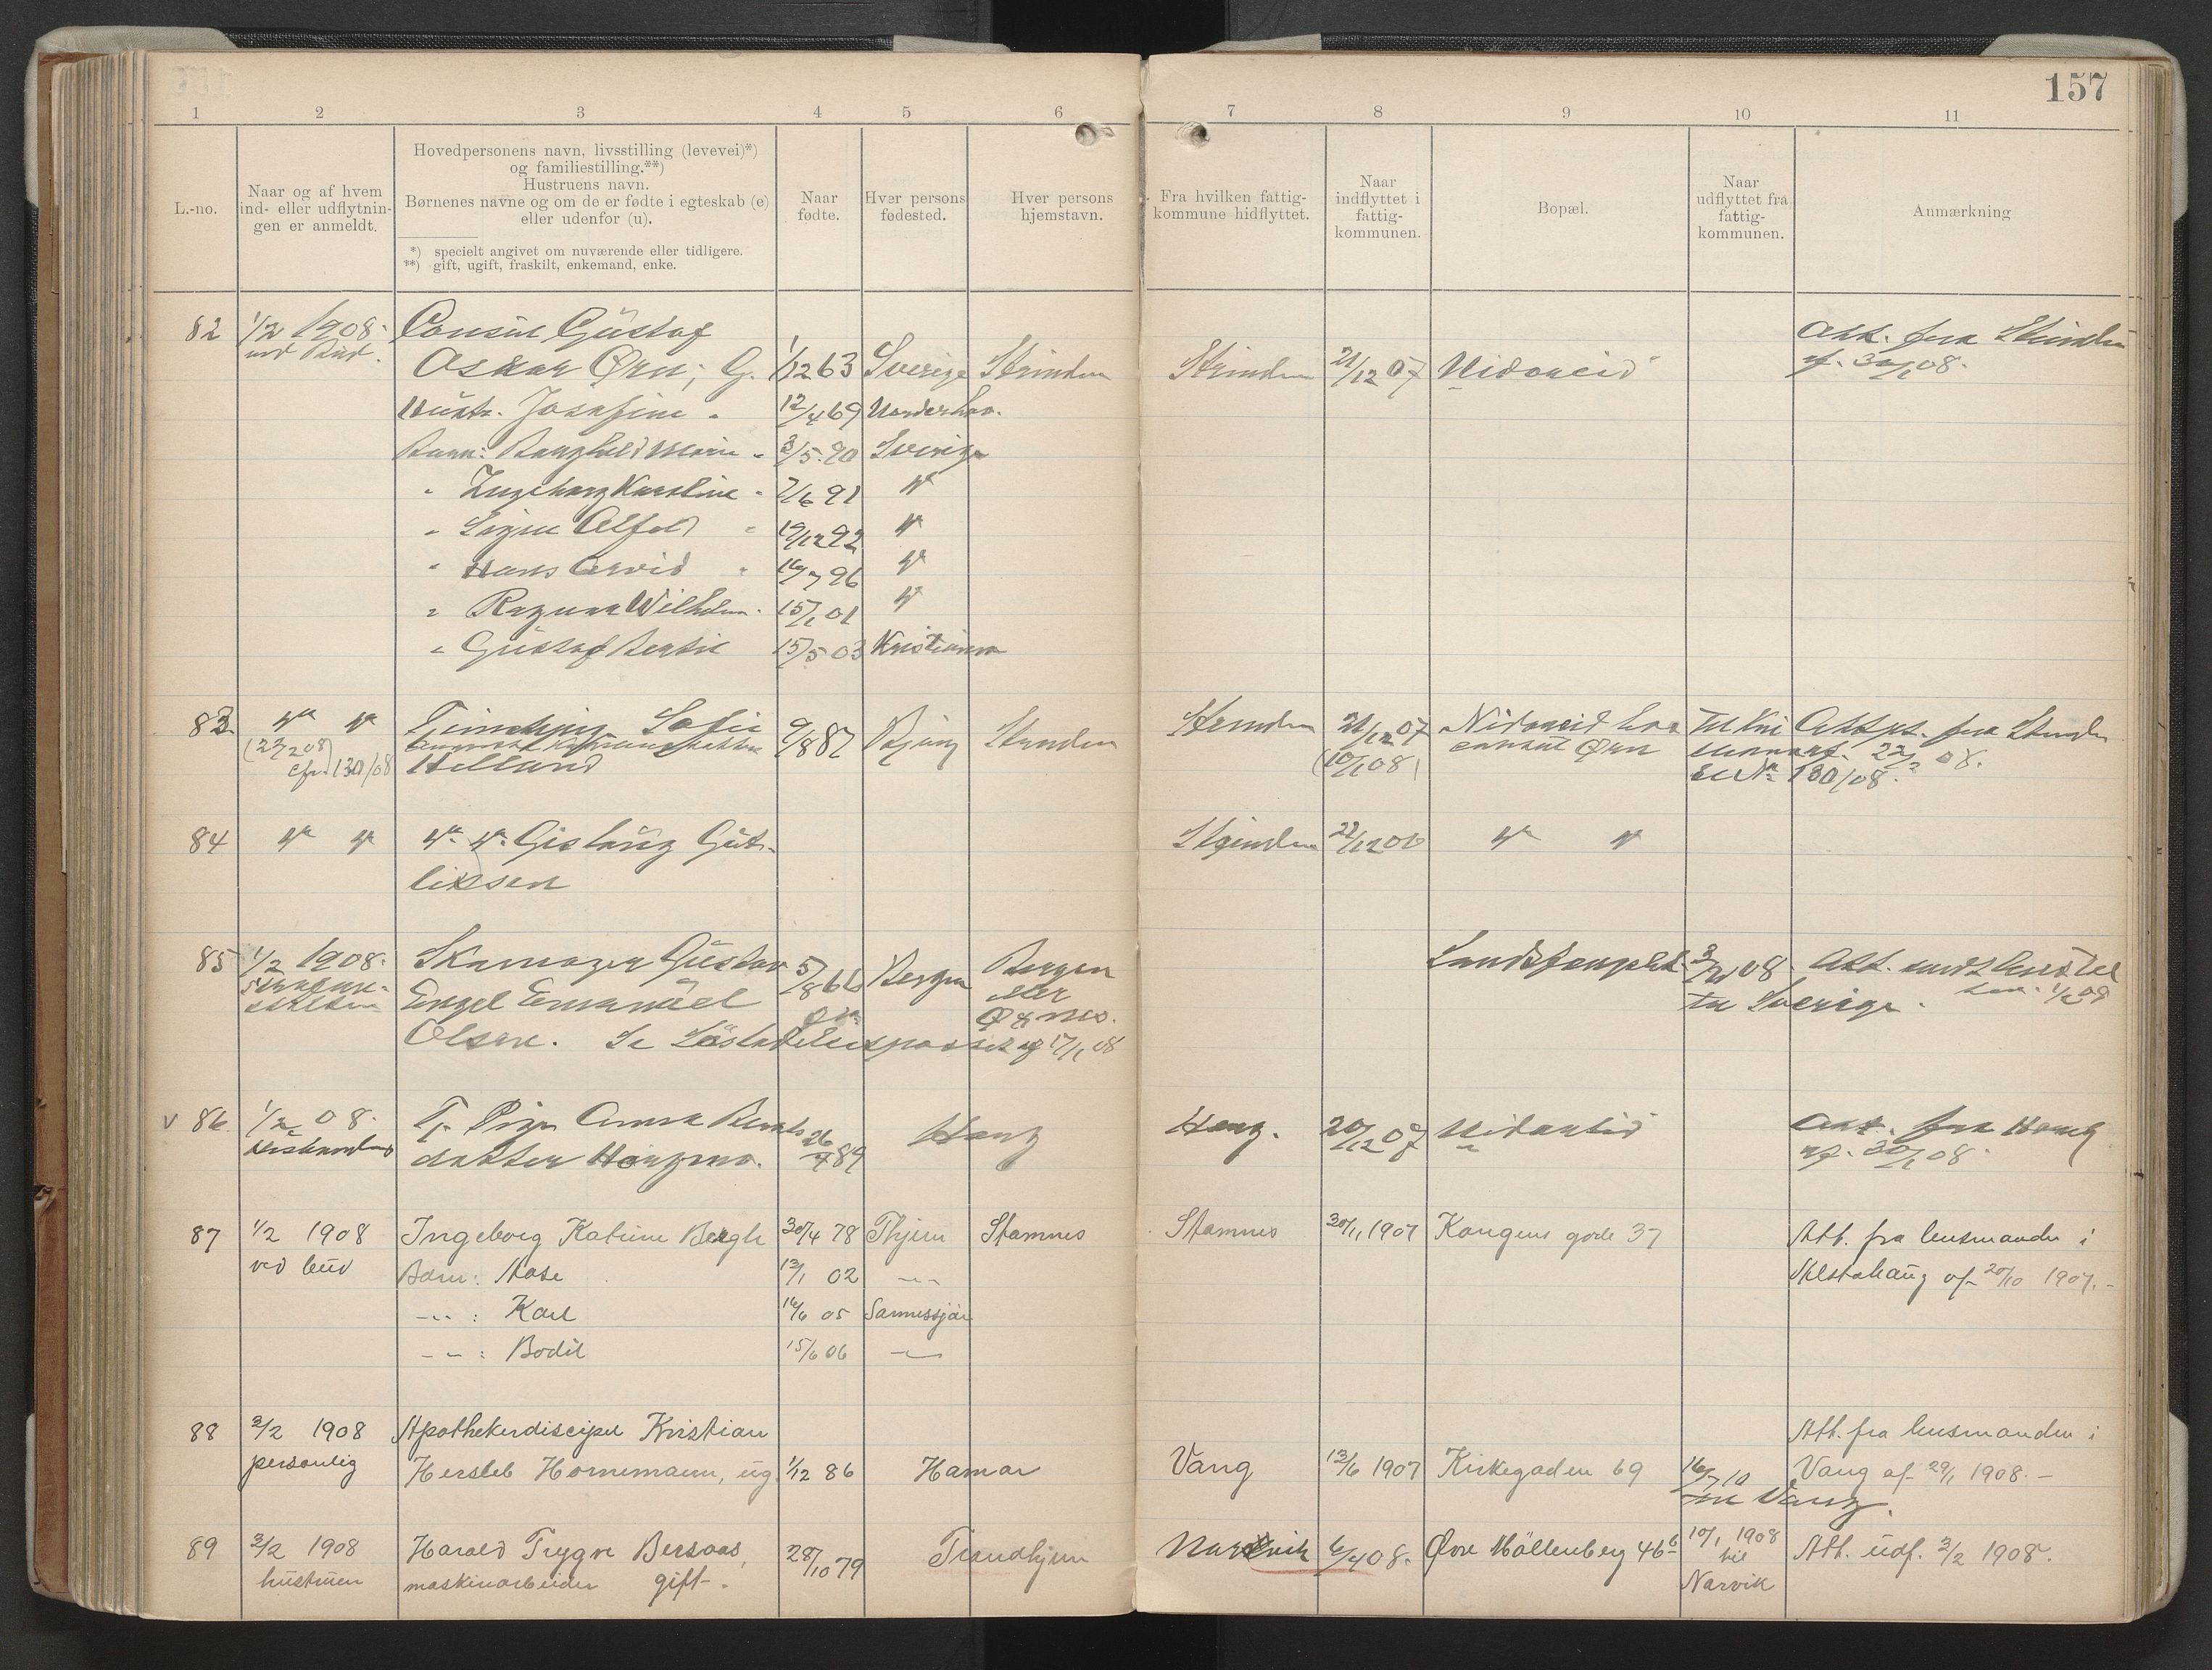 157
1 2 3 4 5 6 7 8 9 10 11
L.-no.
Naar og af hvem
ind- eller udflytnin-
gen er anmeldt.
Hovedpersonens navn, livsstilling (levevei)*)
og familiestilling.**)
Hustruens navn.
Børnenes navne og om de er fødte i egteskab (e)
eller udenfor (u).
*) specielt angivet om nuværende eller tidligere.
**) gift, ugift, fraskilt, enkemand, enke.
Naar
fødte.
Hver persons
fødested.
Hver persons
hjemstavn.
Fra hvilken fattig-
kommune hidflyttet.
Naar
indflyttet i
fattig-
kommunen.
Bopæl.
Naar
udflyttet fra
fattig-
kommunen.
Anmærkning
82 1/2 1908. Consul Gustaf Att. fra Strinden
ved Bud. Oskar Ørn; G. 1/12 63 Sverige Strinden Strinden 21/12 07 Nidareid af 30/1 08.
Hustr. Josefine 12/4 69 Norderhov.
Barn: Ragnhild Marie 3/5. 90 Sverige
" Ingeborg Karoline 7/6 91 "
" Signe Alfild 19/12 92 "
" Hans Arvid 16/7 96 "
" Ragnar Wilhelm 15/1 01 "
" Gustaf Bertil 15/5 03 Kristiania
83. " " Tjenestepige Sofie 9/8 87 Strinden Strinden 21/12 07 Nidareid hos Attest. fra Strinden
(22/2 08) (10/1 08) consul Ørn 22/2 08.
cfr. 130/08 Helland Se No 130/08.
84 " " " " Gislaug Gut- Strinden 21/12 " "
liksen
85 1/2 1908. Gustav 5/8 66 Bergen Bergen 3/2 08. Att.
Engel Emanuel eller til Sverige.
Olsen. Se af 17/1 08
v 86. 1/2 08. Tj. Pige Anna Bernts 26/4 89 Haug Haug. 20/12 07 Nidareid Att. fra Haug
datter Haugmo. af. 30/1 08.
87 1/2 1908 Ingeborg Katrine Bergh 30/4 78 Thjem Stamnes Stamnes 30/11 1907 Kongens gade 37 Att. fra lensmanden i
ved bud Barn: Aase 13/1 02 -"- Alstahaug af 20/10 1907.-
-"- : Karl 16/6 05 Sannessjøen
-"- : Bodil 15/6 06 -"-
88 3/2 1908 Apothekerdiscipel Kristian Att. fra lensmanden i
personlig Hersleb Hornemann, ug. 1/12 86 Hamar Vang 13/6 1907 Kirkegaden 69 16/7 10 Vang af 29/1 1908.-
til Vang.
89 3/2 1908 Harald Trygve Bersaas, 28/10 79 Trondhjem Narvik 6/4 08. Øvre Møllenberg 46 b 10/1 1908 Att. udf. 3/2 1908.
hustruen maskinarbeider gift. til
Narvik